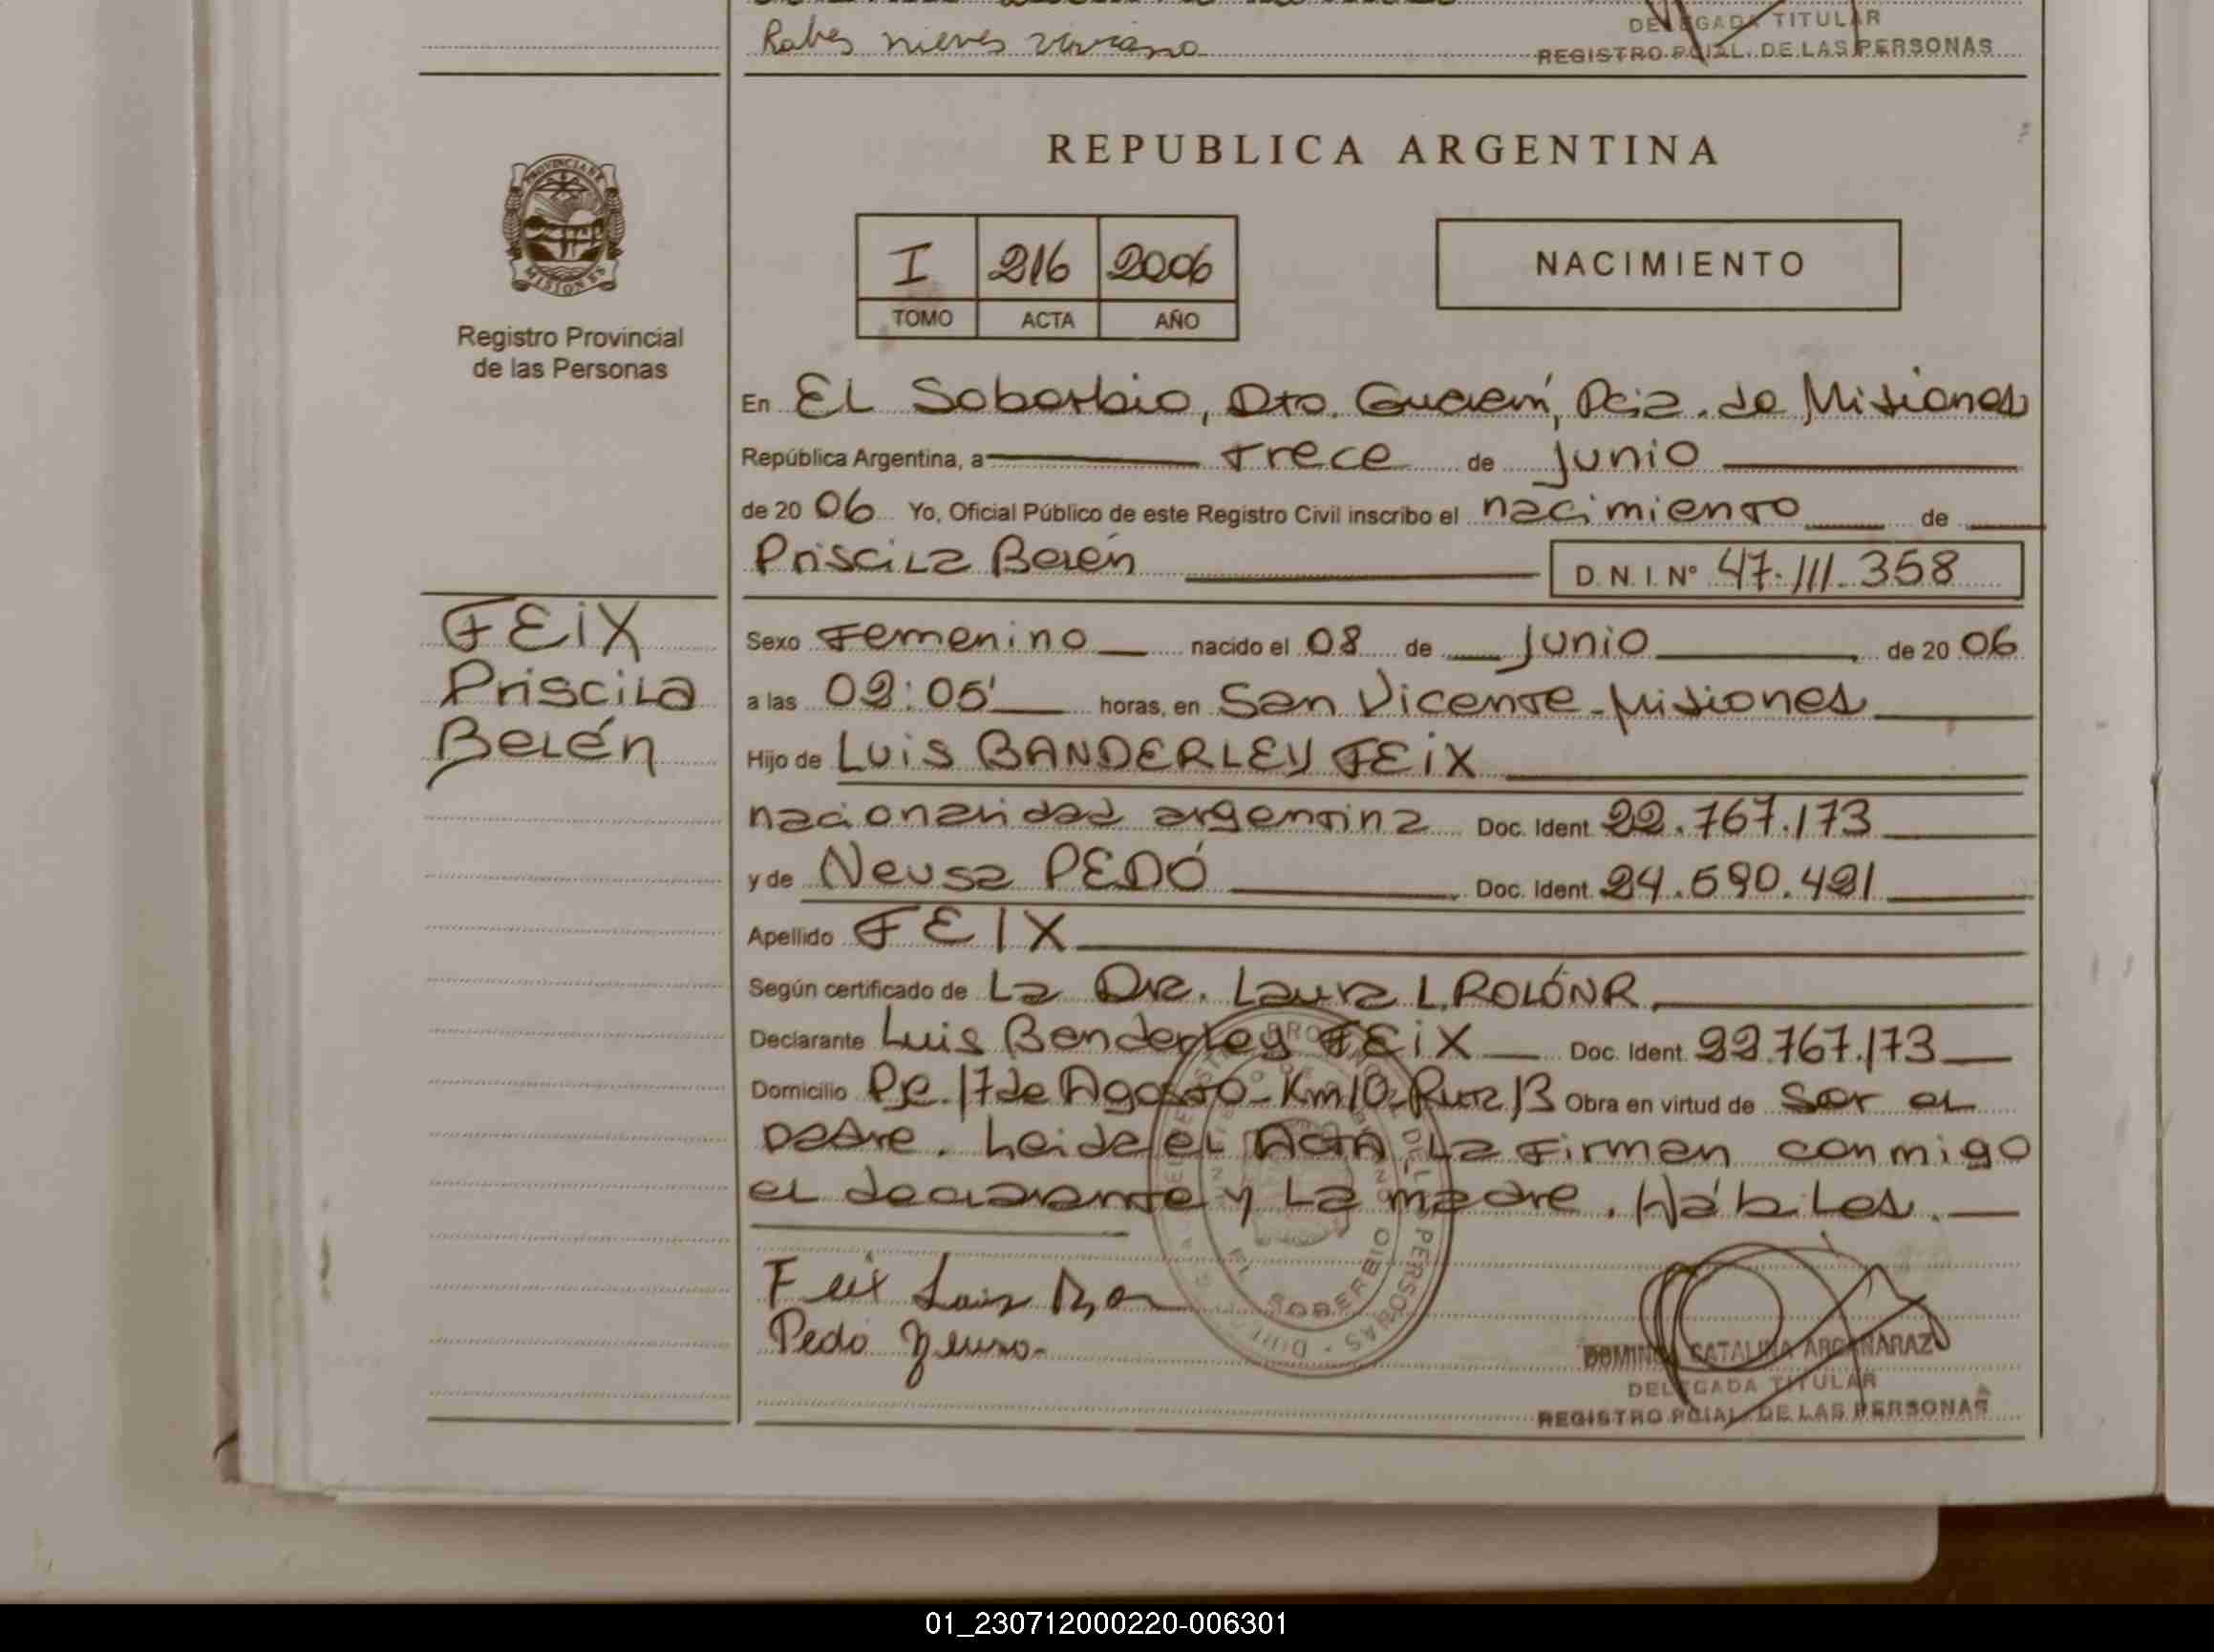 Rabes nieves viviana
DELEGADA TITULAR
REGISTRO PCIAL. DE LAS PERSONAS
REPUBLICA ARGENTINA
PROVINCIA DE
MISIONES
I 216 2006
TOMO ACTA AÑO
NACIMIENTO
Registro Provincial
de las Personas
En EL Soberbio, Dto. Guaraní, Pcia. de Misiones
República Argentina, a trece de junio
de 2006 Yo, Oficial Público de este Registro Civil inscribo el nacimiento de
Priscila Belén D. N. I. Nº 47.111.358
FEIX
Priscila
Belén
Sexo Femenino nacido el 08 de junio de 2006
a las 02:05' horas, en San Vicente-Misiones
Hijo de Luis BANDERLEY FEIX
nacionalidad argentina Doc. Ident. 22.767.173
y de Neusa PEDÓ Doc. Ident. 24.590.421
Apellido FEIX
Según certificado de La Dra. Laura L. ROLÓN R.
Declarante Luis Banderley FEIX Doc. Ident. 22.767.173
Domicilio Pje. 17 de Agosto-Km10-Ruta 13 Obra en virtud de ser el
padre. Leida el Acta, La Firman conmigo
el declarante y La madre. Hábiles.
Feix Luis Ban
Pedó Neusa
EL SOBERBIO
DOMINGA CATALINA ARGAÑARAZ
DELEGADA TITULAR
REGISTRO PCIAL. DE LAS PERSONAS
01_230712000220-006301